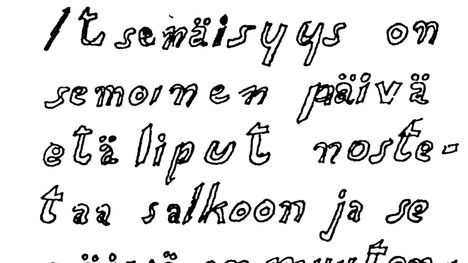 Itsenäisyys on
semoinen päivä
etä liput noste-
taa salkoon ja se